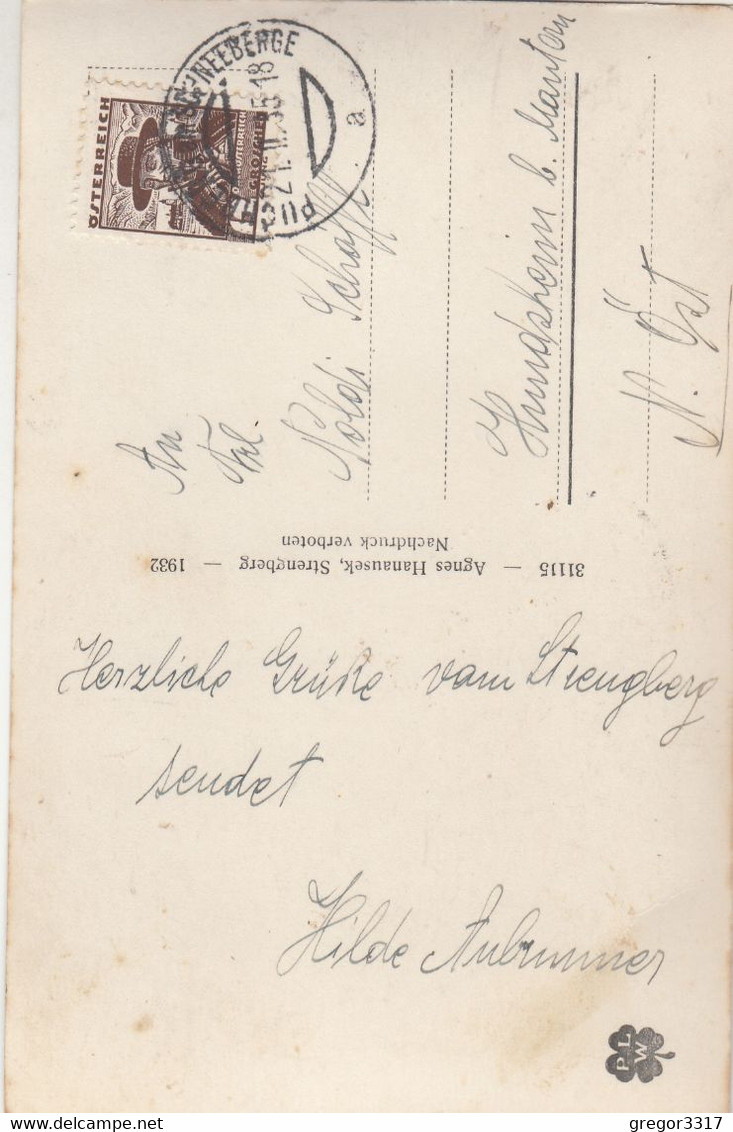 ÖSTERREICH
GROSCHEN
NEEBERGE
PUCH
a
An
Frl.
Poldi Schöffl
Hundsheim b. Mautern
N. Öst
31115 — Agnes Hanausek, Strengberg — 1932
Nachdruck verboten
Herzliche Grüße vom Strengberg
sendet
Hilde Aubrunner
PLW
gregor3317